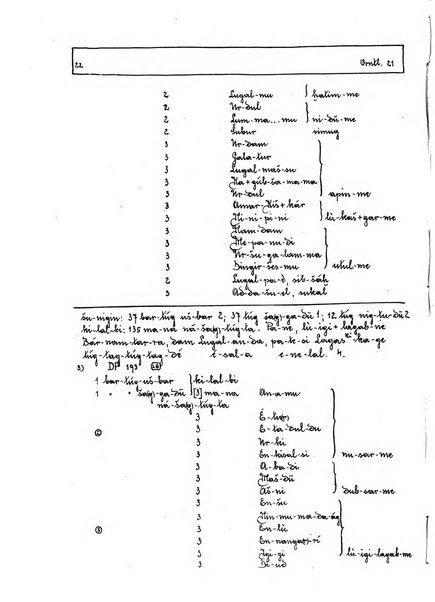 22 Ornt. 21
2 Lugal-mu ḫatim-me
2 Ur-dul
2 Lum-ma...mu ni-dū-me
2 Šubur simug
3 Ur-dam
3 Gala-tur
3 Lugal-maš-su
3 Ka+gúb-ša-ma-ma
3 Ur-dul apin-me
3 Amar-Kiš+kár
3 Ni-ni-pi-ni lù-kaš+gar-me
3 Nam-dam
3 Me-pa-nu-di
3 Ur-šu-ga-lam-ma
3 Dingir-šeš-mu utul-me
2 Lugal-pa-è, sib-šáḫ
3 Ad-da-šu-el, sukal
šu-nigin: 37 bar-túg uš-bar 2; 37 túg ša(g)-ga-dū 1; 12 túg nig-tu-dū 2
ki-lal-bi: 135 ma-na ná-ša(g)-túg-ta. Pa-ne, lù-igi+lagab-ne
Bár-nam-tar-ra, dam Lugal-an-da, pa-te-si Lagaš ki -ka-ge
túg-tag-túg-tag-dè ĭ-sal-a e-ne-lal. 4.
3) DP 193
1 bar-túg-uš-bar ki-lal-bi
1 " ša(g)-ga-dū [3] ma-na An-a-mu
ná-ša(g)-túg-ta
3
3 E-ta-dul-du
② 3 Ur-ki
3 En-kisal-si nu-sar-me
3 A-ba-di
3 Maš-dū
3 Aš-ni dub-sar-me
3 En-šu
3 Nin-mu-ma-da-ág
③ 3 En-lù
3
3 Igi-gi lù-igi-lagab-me
3 Di-ud